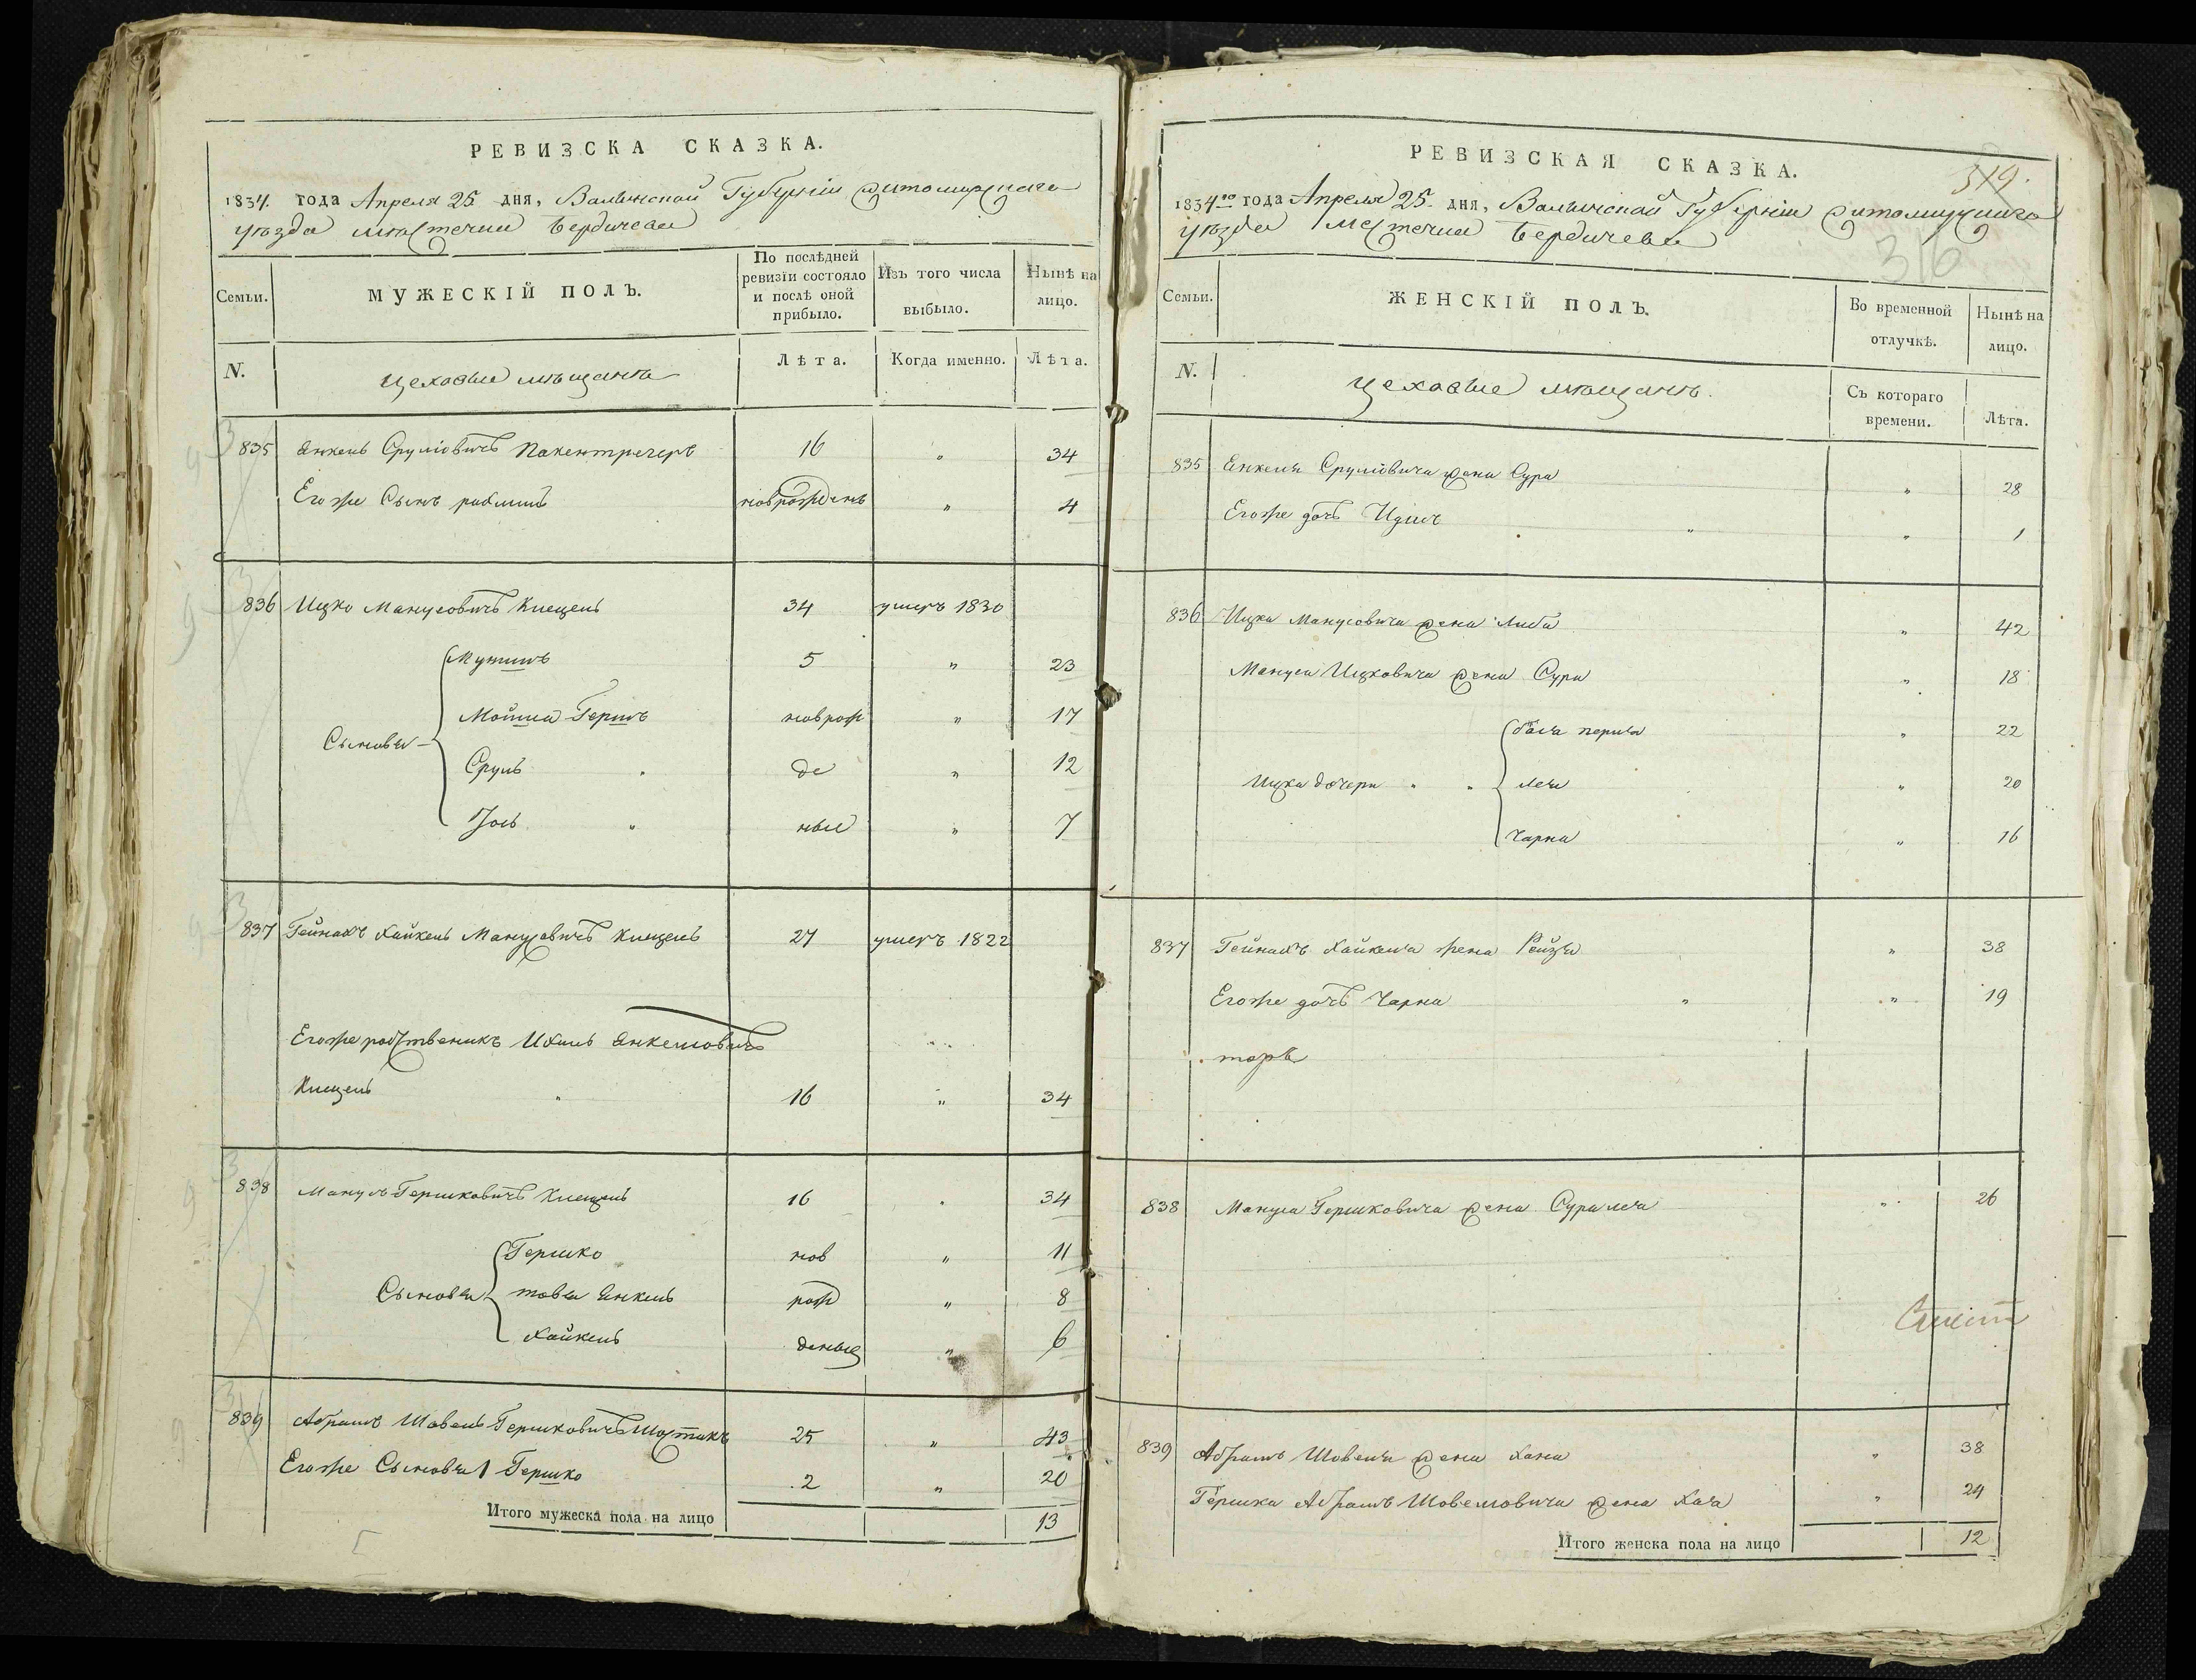 РЕВИЗСКА СКАЗКА.
1834. года Апреля 25 дня, Волынской Губерніи Житомирскаго
уѣзда мѣстечка Бердичева
Семьи.
МУЖЕСКІЙ ПОЛЪ.
По послѣдней ревизіи состояло и послѣ оной прибыло.
Изъ того числа выбыло.
Нынѣ на лицо.
N.
Цеховые мѣщанѣ
Лѣта.
Когда именно.
Лѣта.
835 Янкель Сруліовичъ 16 " 34
Егоже Сынъ новрожденъ " 4
836 Ицко Манусовичъ Киецель 34 умеръ 1830
Сыновья
5 " 23
Мойша Гершъ новрож " 17
Сруль " де " 12
Іось " ные " 7
837 Гейнахъ Хайкель Манусовичъ Киецель 27 умеръ 1822
Егоже родственикъ Ихиль Янкелювичъ
Киецель " 16 " 34
838 Манусъ Гершковичъ Киецель 16 " 34
Сыновья
Гершко нов " 11
Товья Янкель рож " 8
Хайкель деные " 6
839 Абрамъ Шовель Гершковичъ Шостакъ 25 " 43
Егоже Сыновья 1 Гершко 2 " 20
Итого мужеска пола на лицо 13
РЕВИЗСКАЯ СКАЗКА.
319.
1834го года Апреля 25 дня, Волынской Губерніи Житомирскаго
уѣзда местечка Бердичева
316
Семьи.
ЖЕНСКІЙ ПОЛЪ.
Во временной отлучкѣ.
Нынѣ на лицо.
N.
Цеховые мѣщанѣ.
Съ котораго времени.
Лѣта.
835 Янкеля Сруліовича жена Сура " 28
Егоже дочь " " 1
836 Ицка Манусовича жена Либа " 42
Мануса Ицковича жена Сура " 18
Ицка дочери " "
Бася Перля " 22
Лея " 20
Чарна " 16
837 Гейнахъ Хайкеля жена Рейзя " 38
Егоже дочь Чарна " " 19
838 Мануса Гершковича жена Сура Лея " 26
839 Абрамъ Шовеля жена Хана " 38
Гершка Абрамъ Шовелювича жена Хая " 24
Итого женска пола на лицо 12